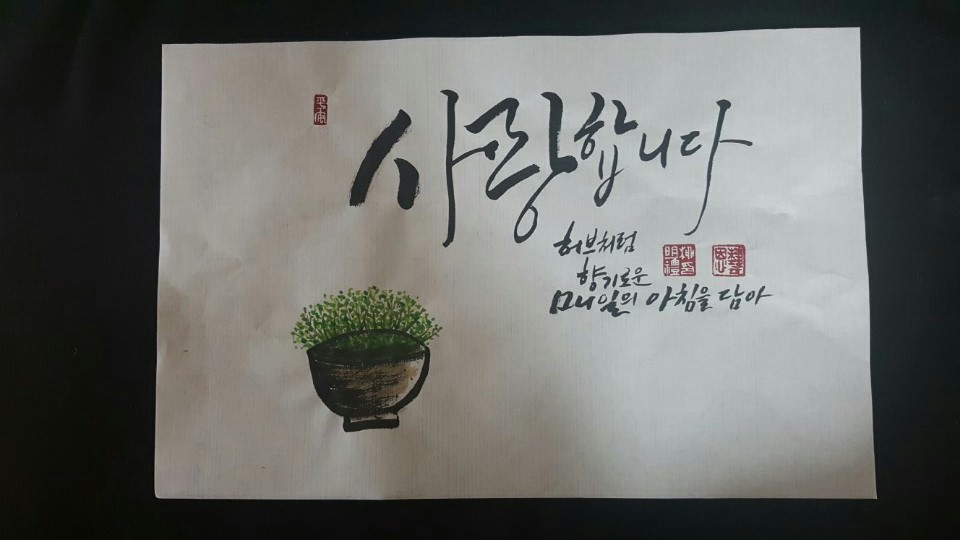 사랑합니다
허브처럼
향기로운
매일의 아침을 담아